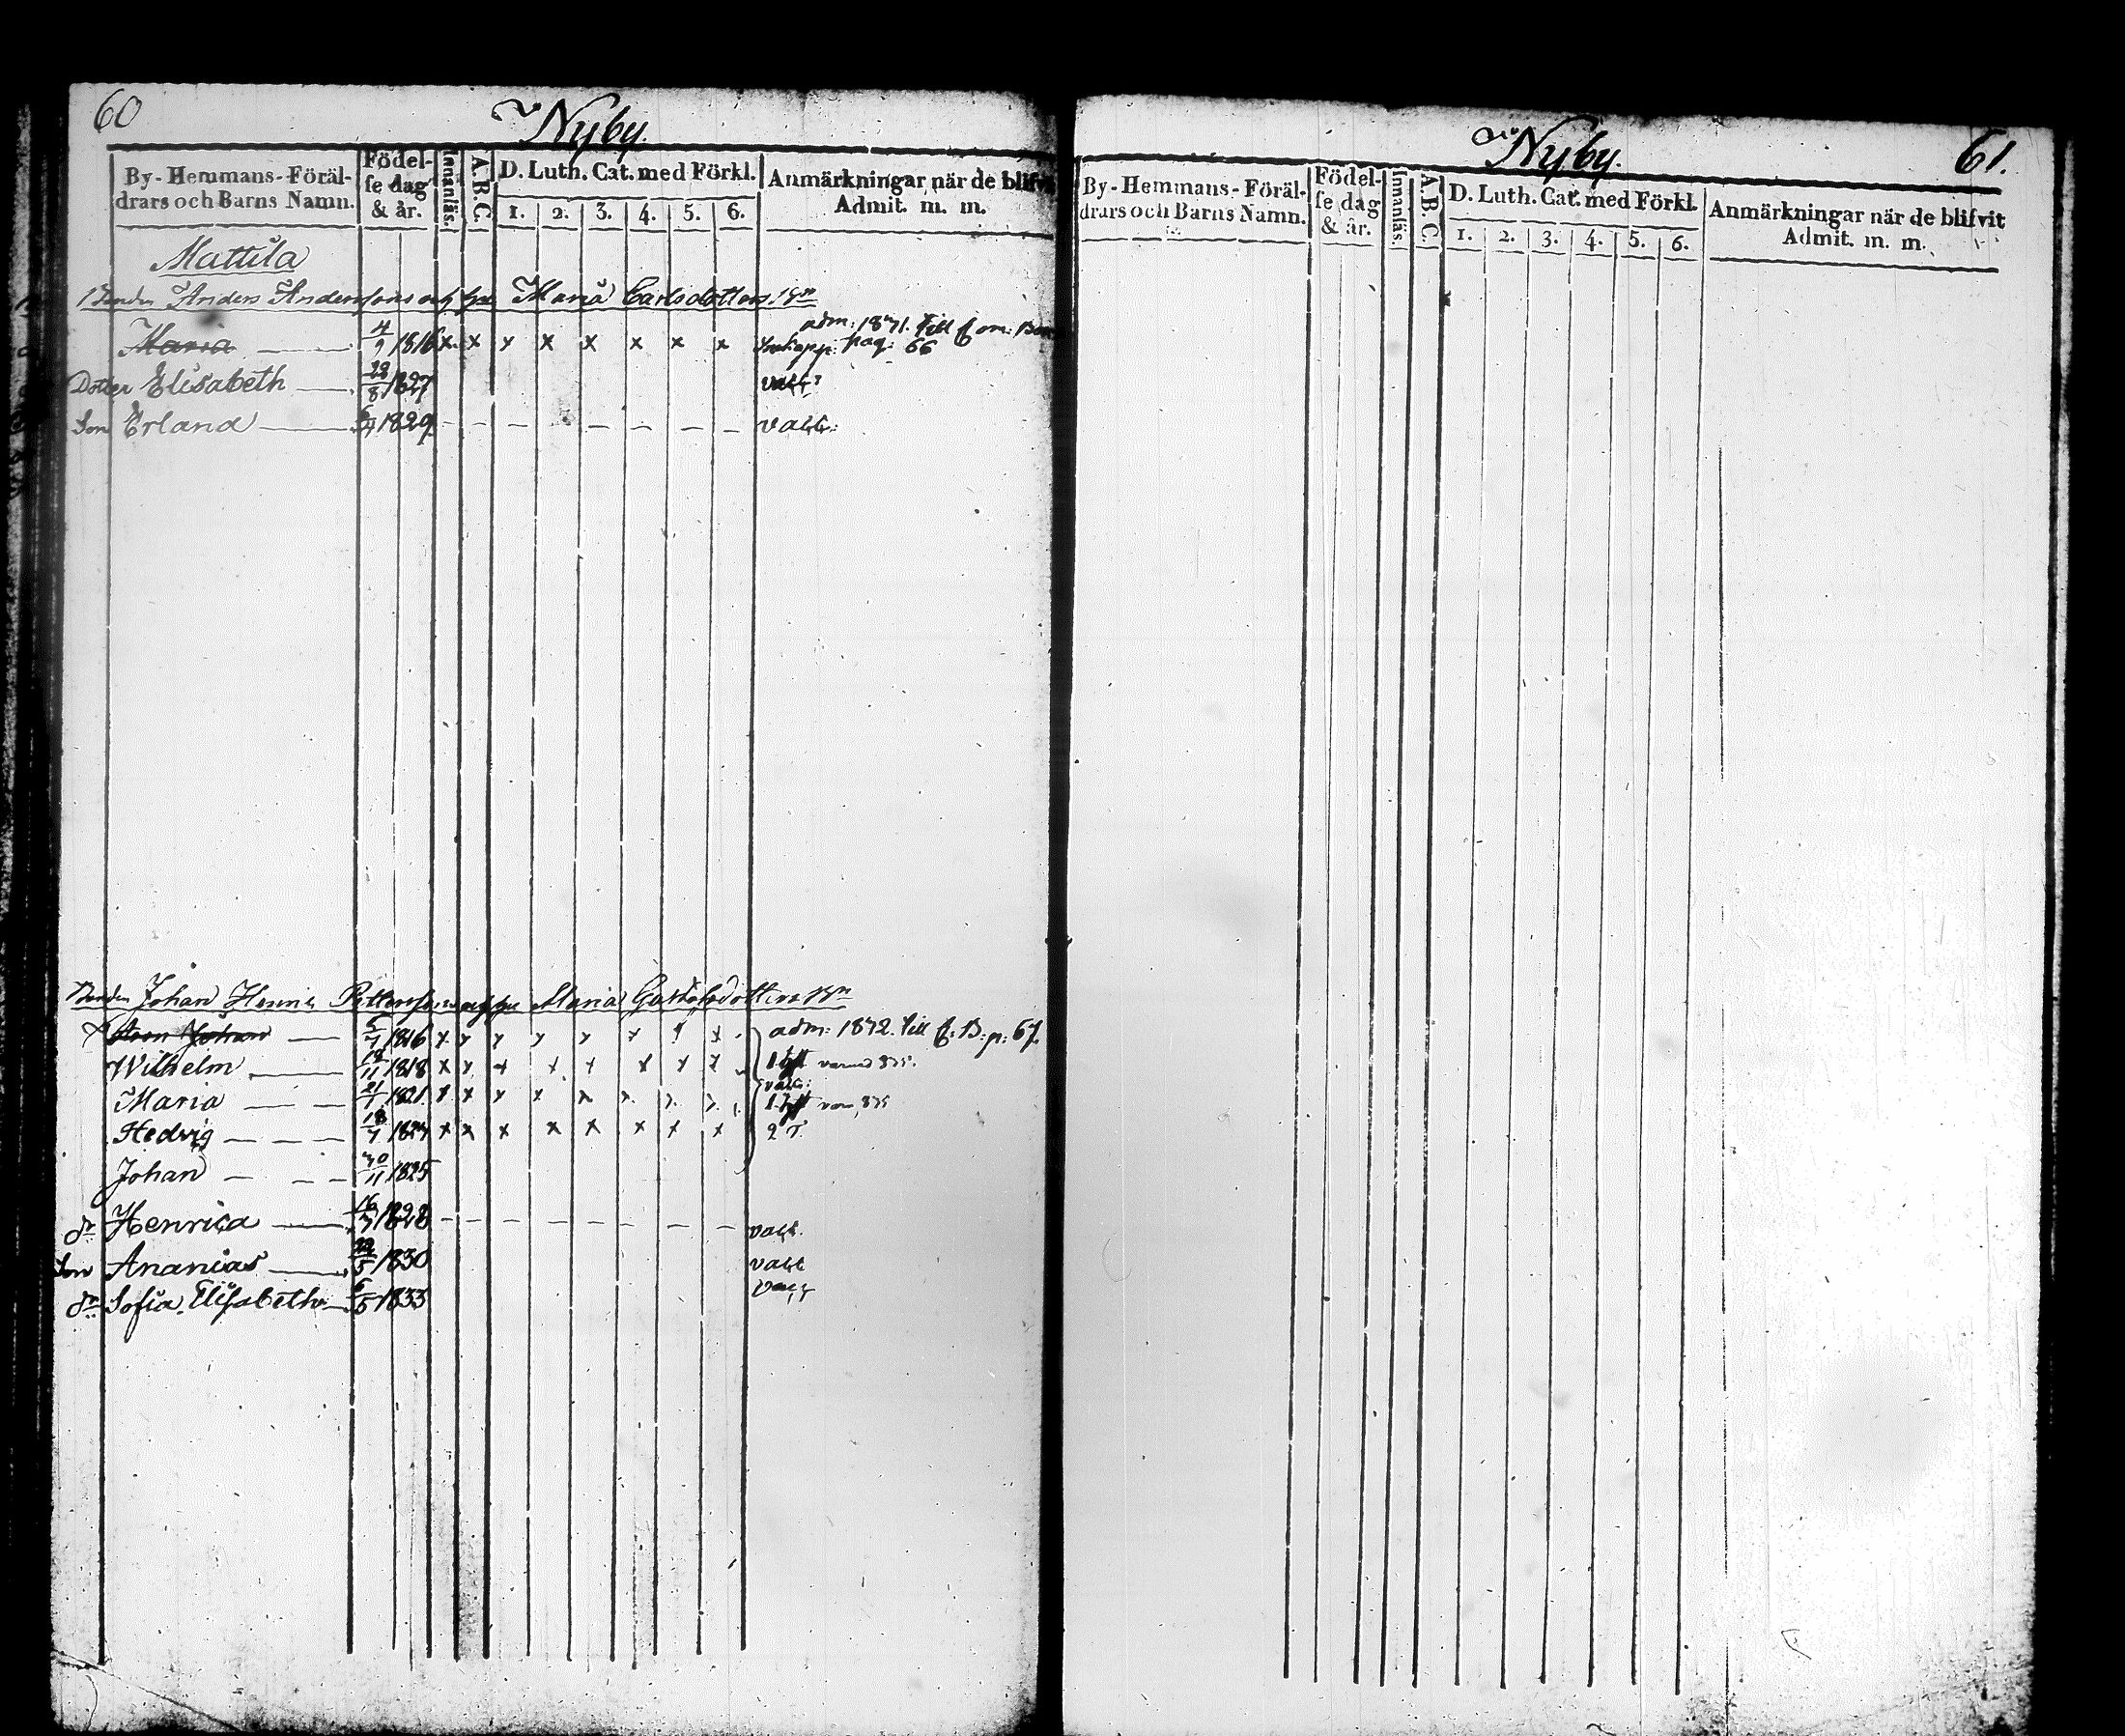 60
Nyby.
By-Hemmans-Föräl-
drars och Barns Namn.
Födel-
se dag
& år.
Innanläs.
A.B.C.
D. Luth. Cat. med Förkl.
1. 2. 3. 4. 5. 6.
Anmärkningar när de blifvit
Admit. m. m.
Mattila
Bonden Anders Anderssons och Maria Carlsdotters Bn
Maria 4/9 1816 x x x x x x x x
pag: 66
Dotter Elisabeth 28/8 1827 vacc:
Son Erland 1829 - - - - - - - vacc:
Bonden Johan Henric Pettersons Maria Gustafsdotters Bn
Johan 5/7 1816 x x x x x x x x adm: p: 67.
Wilhelm 18/11 1818 x x x x x x x x
vacc:
Maria 21/1 1821 x x x x x x x x
Hedvig 18/7 x x x x x x x x 2 T.
Johan 30/11 1825
dr Henrica 16/7 1828 - - - - - - - vacc.
Son Ananias 1830 vacc
dr Sofia Elisabeth 6/5 1833 vacc
Nyby.
61.
By-Hemmans-Föräl-
drars och Barns Namn.
Födel-
se dag
& år.
Innanläs.
A.B.C.
D. Luth. Cat. med Förkl.
1. 2. 3. 4. 5. 6.
Anmärkningar när de blifvit
Admit. m. m.